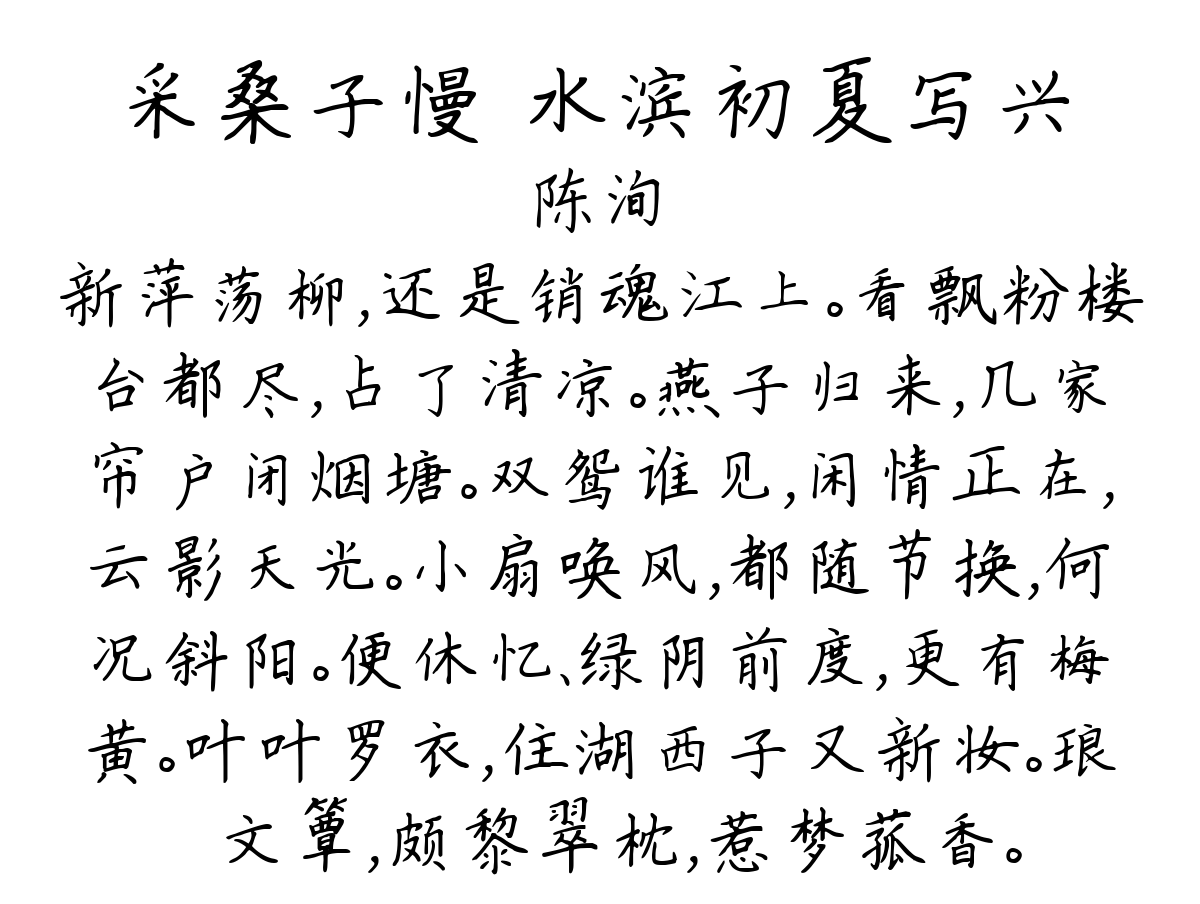 采桑子慢 水滨初夏写兴
陈洵
新萍荡柳,还是销魂江上。看飘粉楼
台都尽,占了清凉。燕子归来,几家
帘户闭烟塘。双鸳谁见,闲情正在,
云影天光。小扇唤风,都随节换,何
况斜阳。便休忆、绿阴前度,更有梅
黄。叶叶罗衣,住湖西子又新妆。琅
文簟,颇黎翠枕,惹梦菰香。